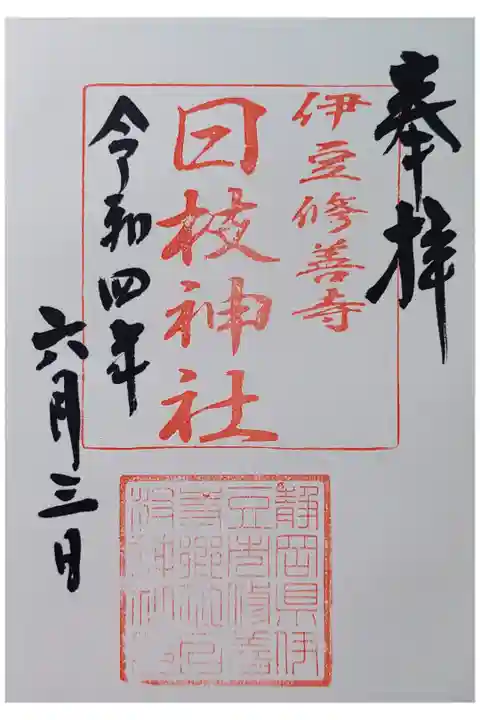 奉拝
伊豆修善寺
日枝神社
令和四年
六月三日
静岡県伊
豆市修善
寺鎮
枝神社